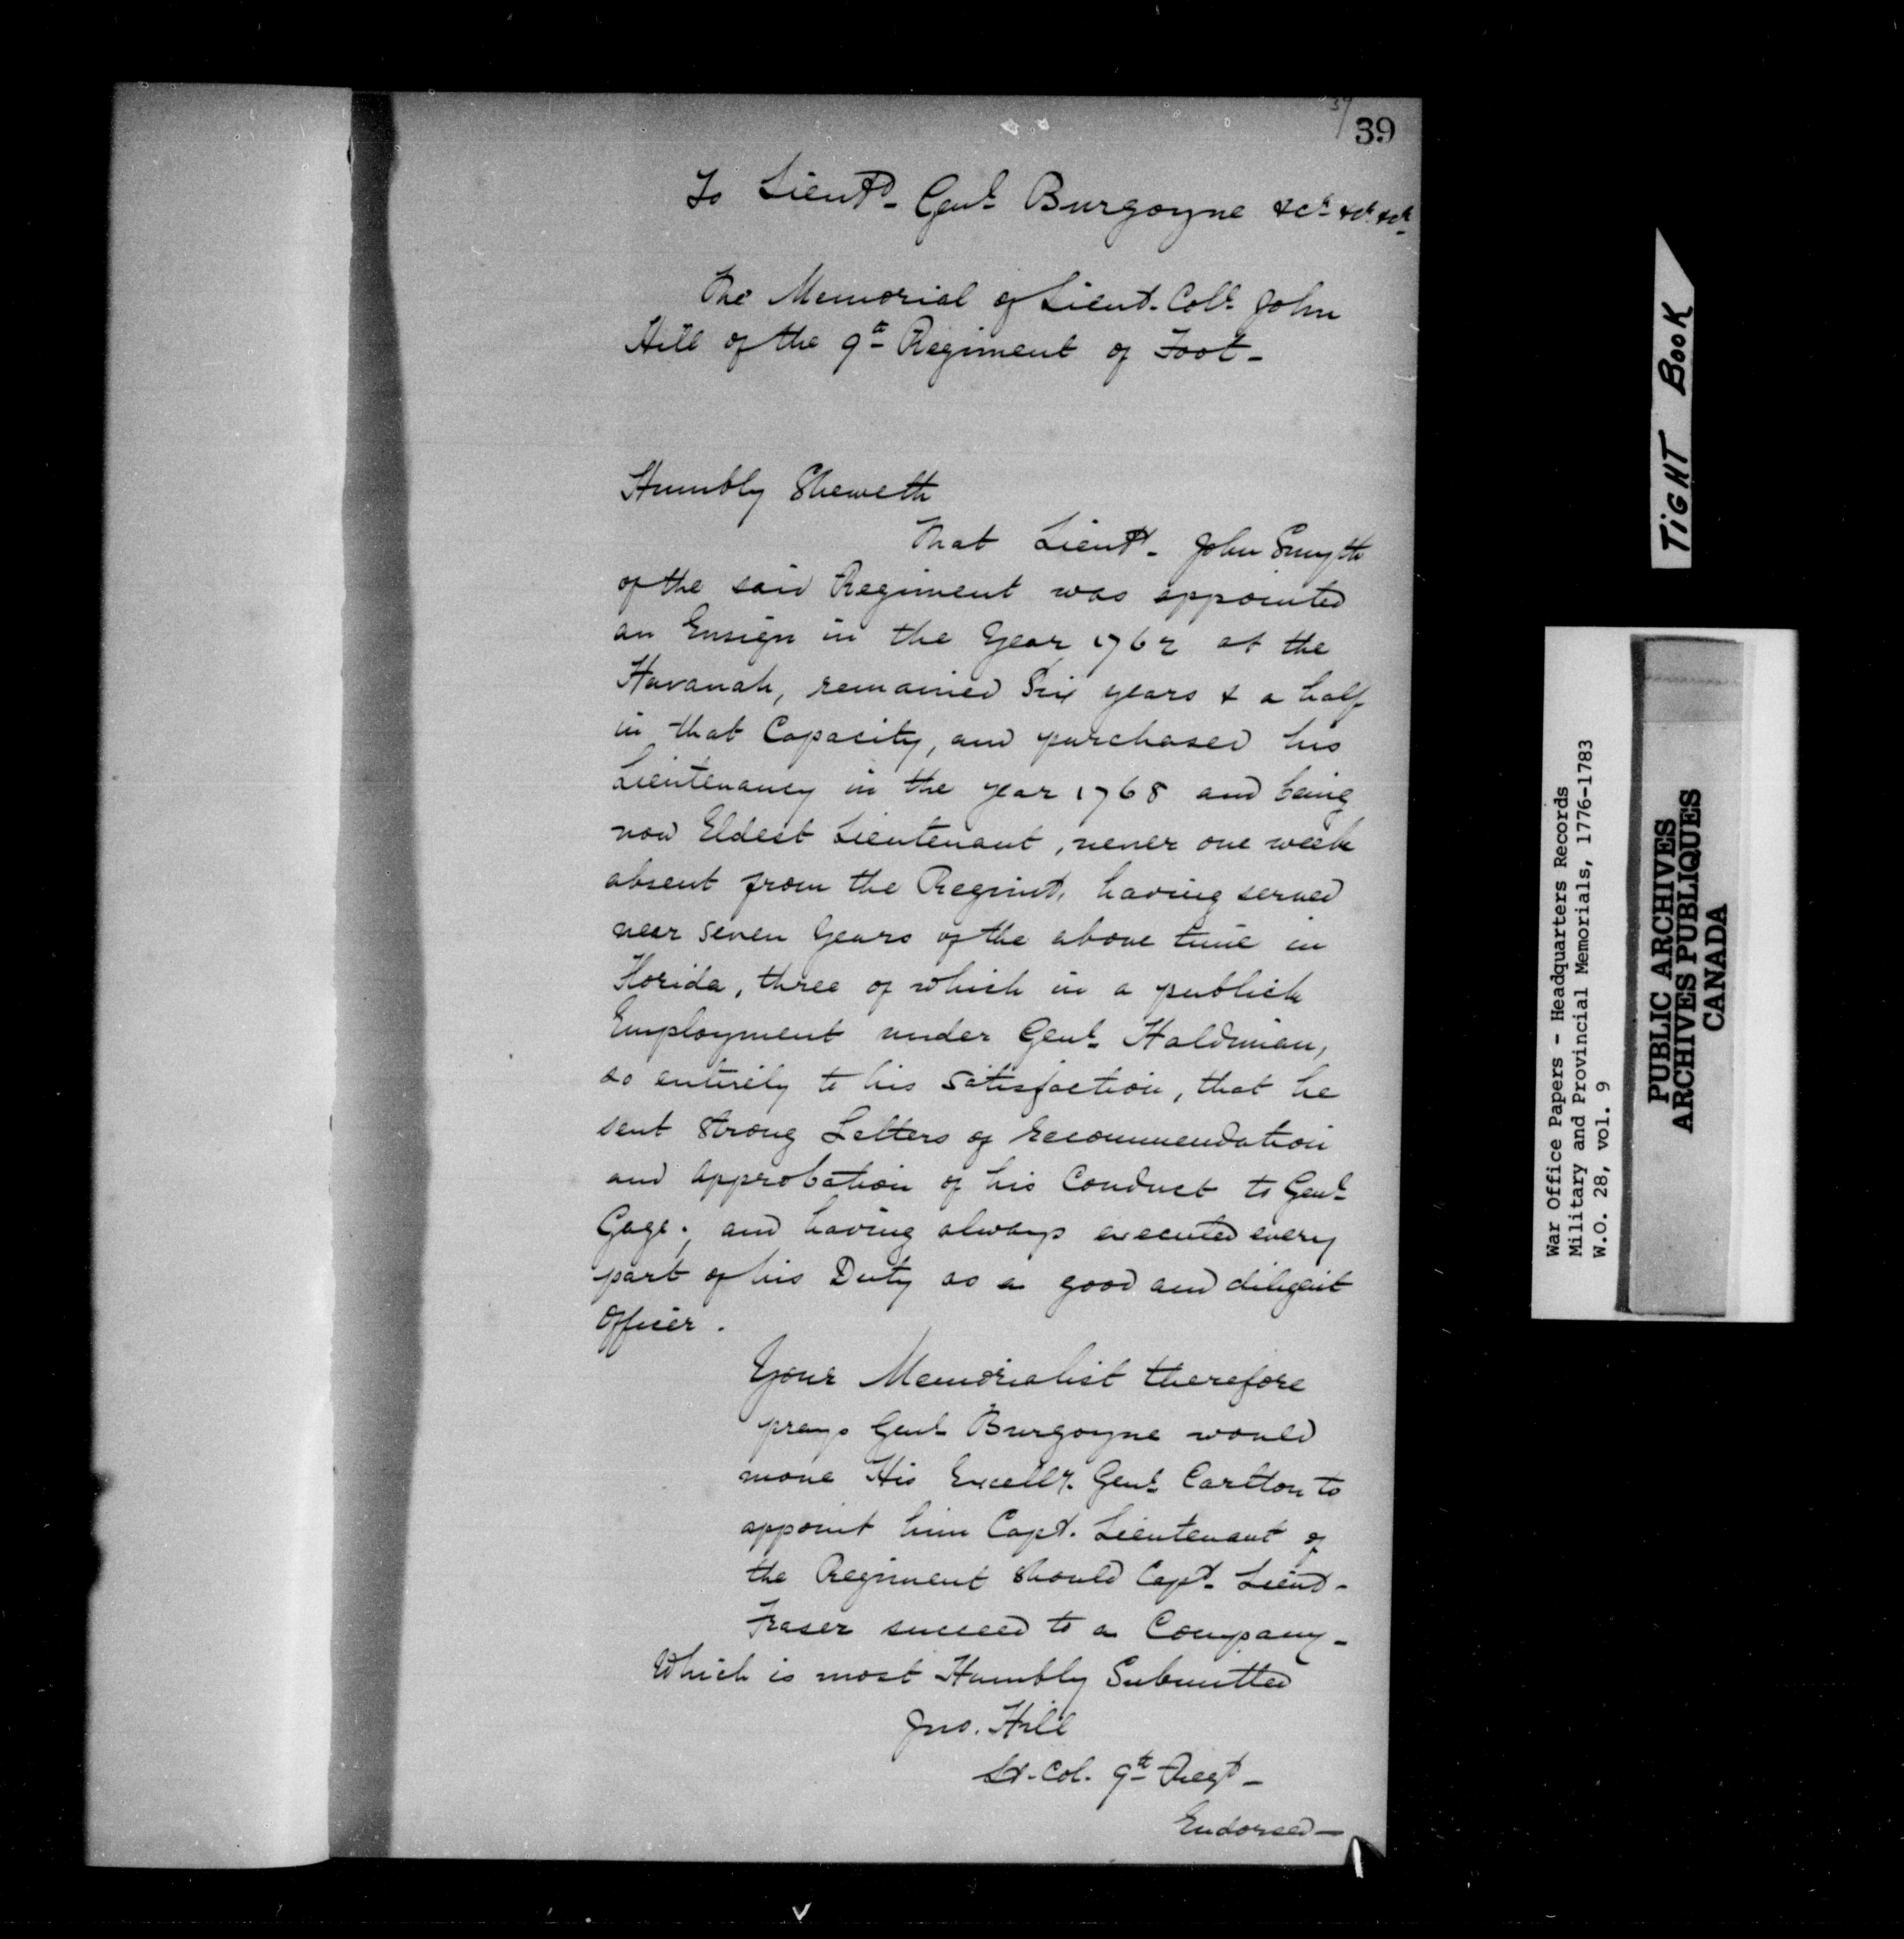 39
39
To Lieut.- Genl. Burgoyne &ca. &ca. &ca.
The Memorial of Lieut. Coll. John
Hill of the 9th Regiment of Foot -
Humbly Sheweth
That Lieut. John Smyth
of the said Regiment was appointed
an Ensign in the Year 1762 at the
Havanah, remained Six years & a half
in that Capacity, and purchased his
Lieutenancy in the year 1768 and being
now Eldest Lieutenant, never one week
absent from the Regimt. having served
near seven Years of the above time in
Florida, three of which in a publick
Employment under Genl. Haldiman,
so entirely to his satisfaction, that he
sent strong Letters of recommendation
and approbation of his Conduct to Genl.
Gage; and having always executed every
part of his Duty as a good and diligent
Officer.
Your Memorialist therefore
prays Genl. Burgoyne would
move His Excelly. Genl. Carlton to
appoint him Capt. Lieutenant of
the Regiment should Capt. Lieut.
Fraser succeed to a Company -
Which is most Humbly Submitted
Jno. Hill
Lt. Col. 9th Regt. -
Endorsed -
TIGHT BOOK
War Office Papers - Headquarters Records
Military and Provincial Memorials, 1776-1783
W.O. 28, vol. 9
PUBLIC ARCHIVES
ARCHIVES PUBLIQUES
CANADA